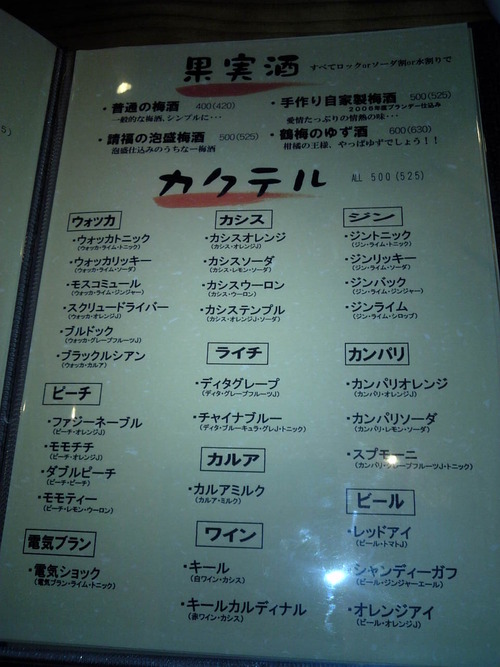 果実酒 すべてロックorソーダ割or水割りで
・普通の梅酒 400(420)
一般的な梅酒、シンプルに・・・
・手作り自家製梅酒 500(525)
2008年度ブランデー仕込み
愛情たっぷりの情熱の味・・・
・請福の泡盛梅酒 500(525)
泡盛仕込みのうちなー梅酒
・鶴梅のゆず酒 600(630)
柑橘の王様、やっぱゆずでしょう!!
カクテル ALL 500(525)
ウォッカ
・ウォッカトニック
(ウォッカ・ライム・トニック)
・ウォッカリッキー
(ウォッカ・ライム・ソーダ)
・モスコミュール
(ウォッカ・ライム・ジンジャー)
・スクリュードライバー
(ウォッカ・オレンジJ)
・ブルドック
(ウォッカ・グレープフルーツJ)
・ブラックルシアン
(ウォッカ・カルア)
ピーチ
・ファジーネーブル
(ピーチ・オレンジJ)
・モモチチ
(ピーチ・オレンジJ)
・ダブルピーチ
(ピーチ・ピーチ)
・モモティー
(ピーチ・レモン・ウーロン)
電気ブラン
・電気ショック
(電気ブラン・ライム・トニック)
カシス
・カシスオレンジ
(カシス・オレンジJ)
・カシスソーダ
(カシス・レモン・ソーダ)
・カシスウーロン
(カシス・ウーロン)
・カシステンプル
(カシス・オレンジJ・ソーダ)
ライチ
・ディタグレープ
(ディタ・グレープフルーツJ)
・チャイナブルー
(ディタ・ブルーキュラ・グレJ・トニック)
カルア
・カルアミルク
(カルア・ミルク)
ワイン
・キール
(白ワイン・カシス)
・キールカルディナル
(赤ワイン・カシス)
ジン
・ジントニック
(ジン・ライム・トニック)
・ジンリッキー
(ジン・ライム・ソーダ)
・ジンバック
(ジン・ライム・ジンジャー)
・ジンライム
(ジン・ライム・シロップ)
カンパリ
・カンパリオレンジ
(カンパリ・オレンジJ)
・カンパリソーダ
(カンパリ・レモン・ソーダ)
・スプモーニ
(カンパリ・グレープフルーツJ・トニック)
ビール
・レッドアイ
(ビール・トマトJ)
・シャンディーガフ
(ビール・ジンジャーエール)
・オレンジアイ
(ビール・オレンジJ)